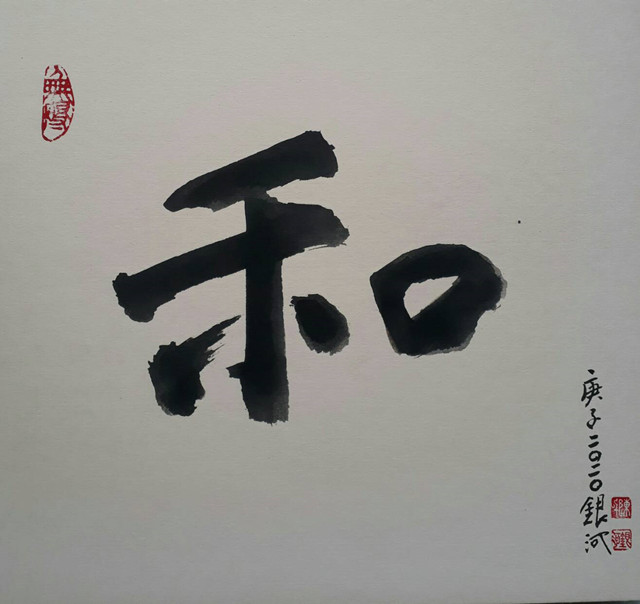 和
庚子二〇二〇銀河